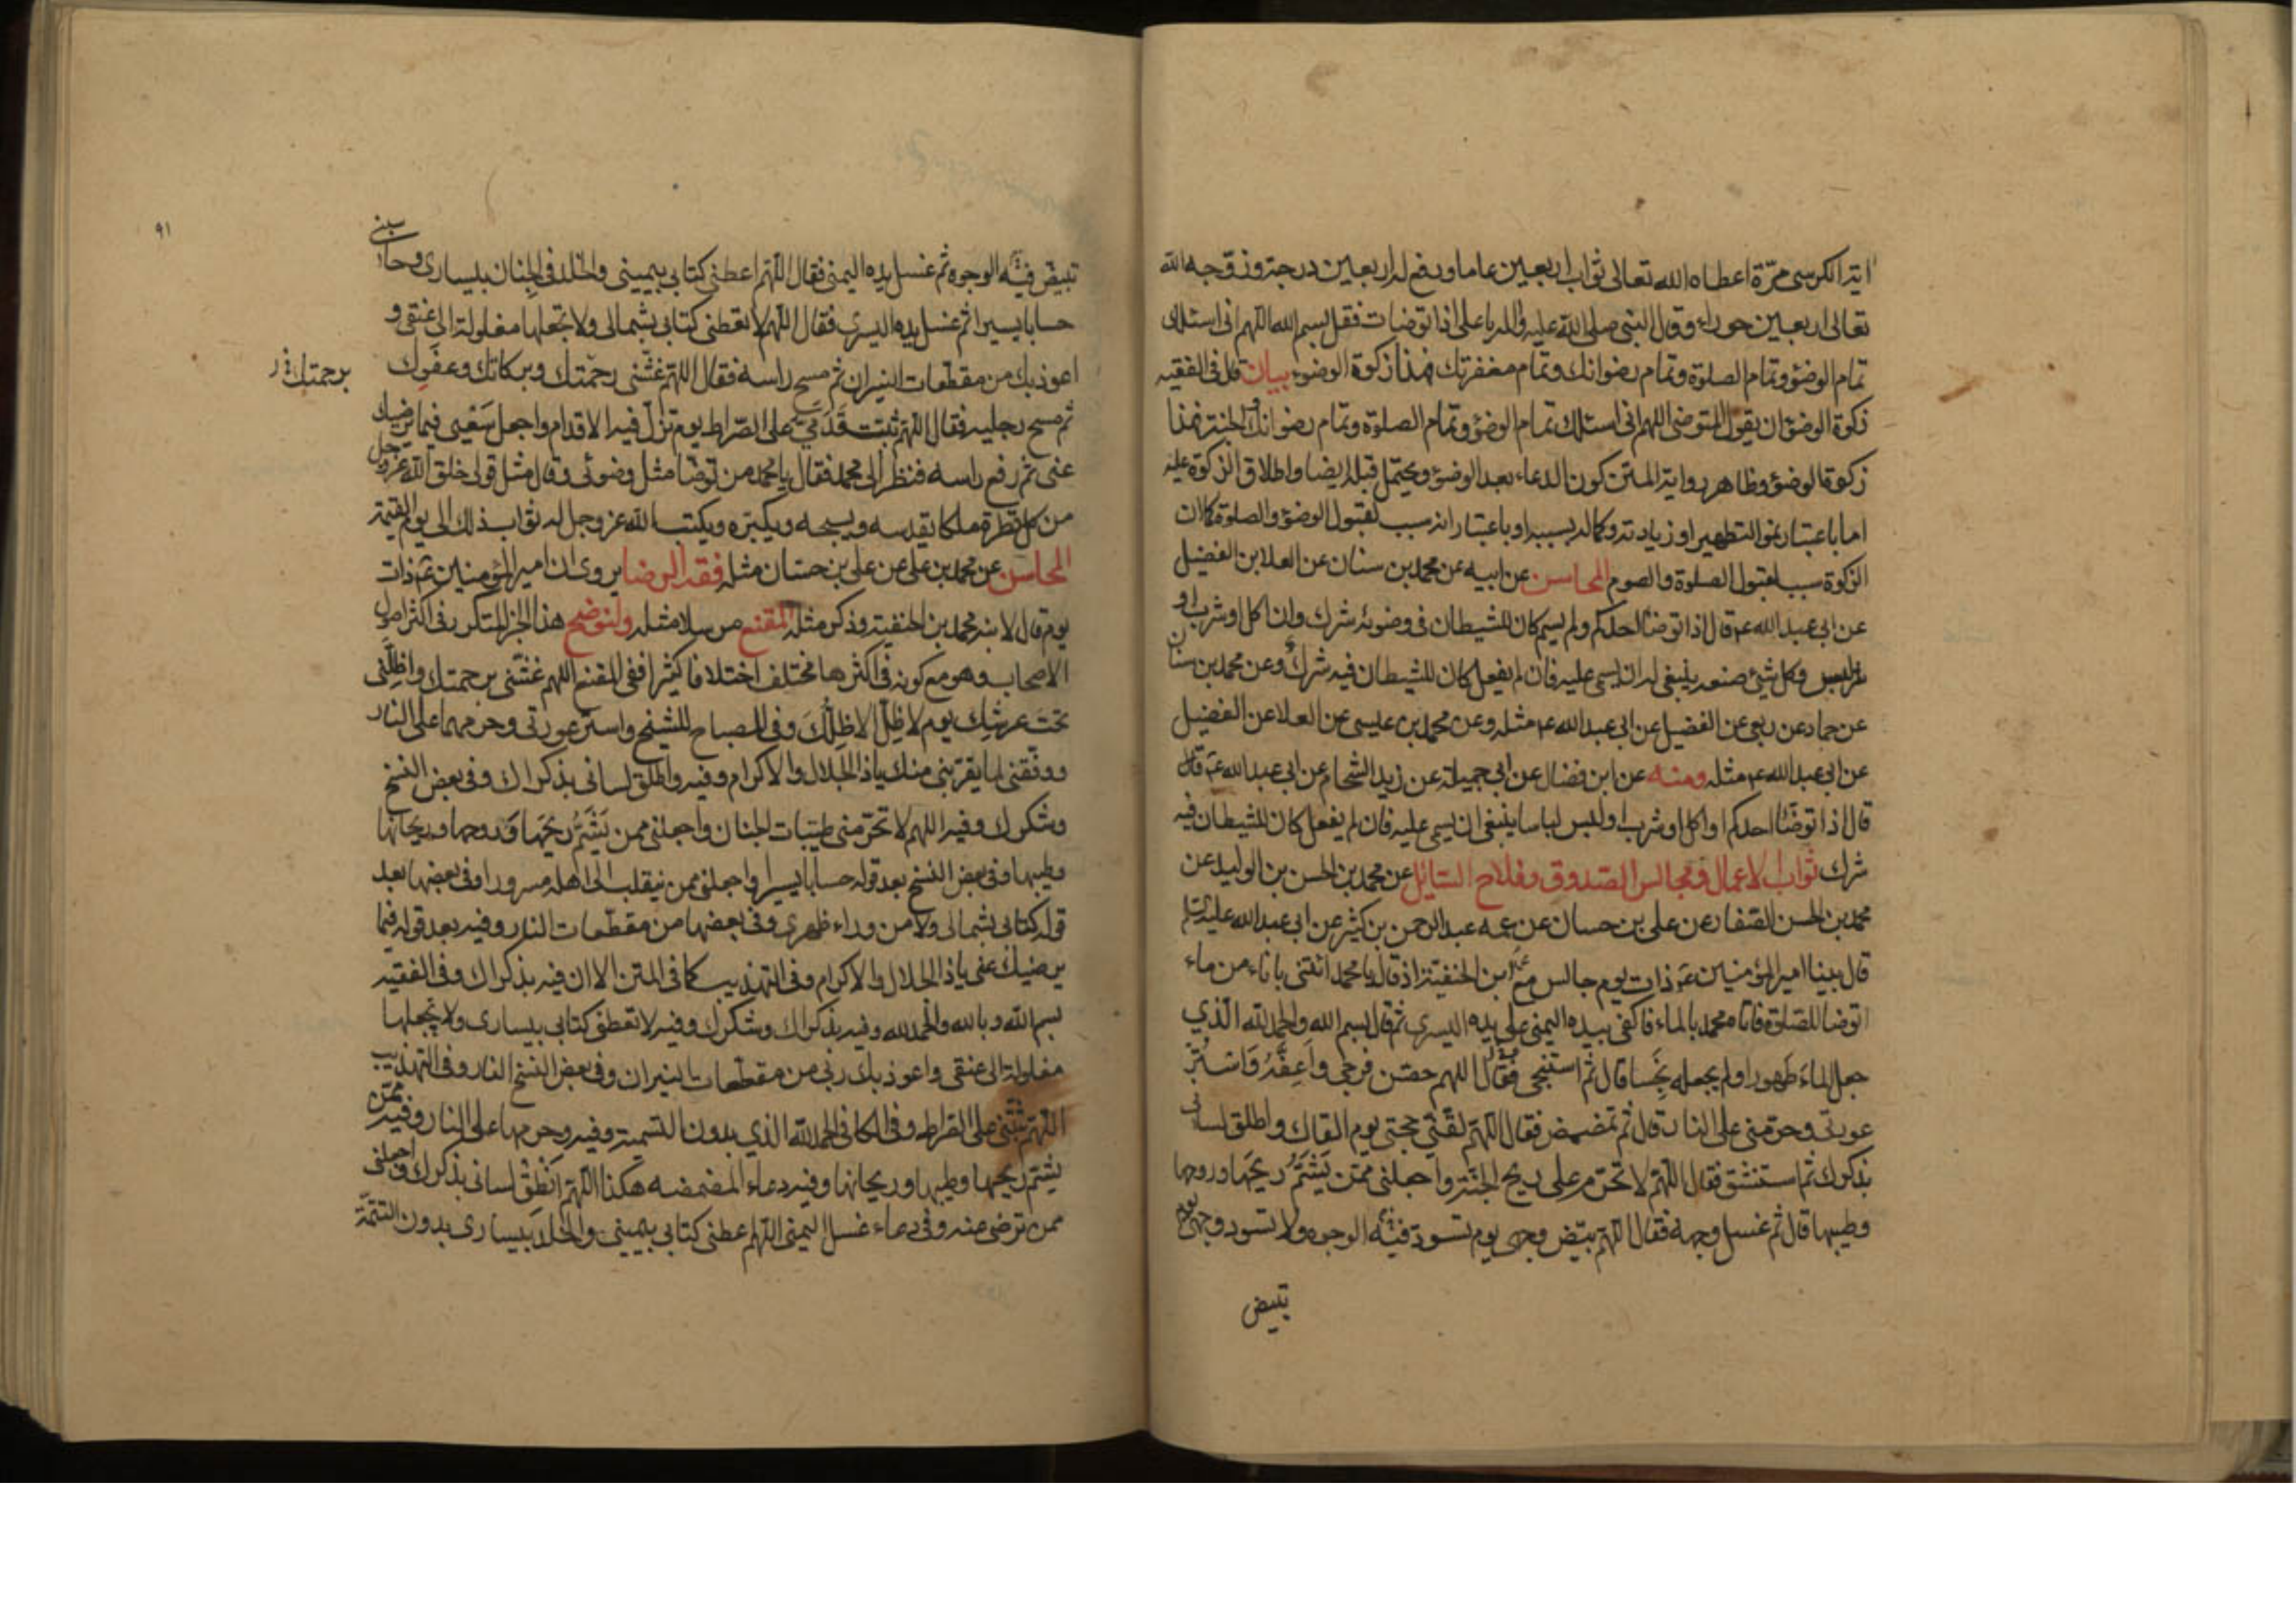 اية الكرسى مرّة اعطاه الله تعالى ثواب اربعين عاما ورفع له اربعين درجة وزوّجه الله
تعالى اربعين حوراء وقال النبى صلى الله عليه واله يا على اذا توضات فقل بسم الله اللهم انى اسئلك
تمام الوضوء وتمام الصلوة وتمام رضوانك وتمام مغفرتك فهذا زكوة الوضوء بيان قال فى الفقيه
زكوة الوضوء ان يقول المتوضى اللهم انى اسئلك تمام الوضوء وتمام الصلوة وتمام رضوانك والجنة فهذا
زكوة الوضوء وظاهر رواية المتن كون الدعاء بعد الوضوء ويحتمل قبله ايضا واطلاق الزكوة عليه
اما باعتبار نمو التطهير او زيادته وكماله بسببه او باعتبار انه سبب لقبول الوضوء والصلوة كما ان
الزكوة سبب لقبول الصلوة والصوم المحاسن عن ابيه عن محمد بن سنان عن العلا بن الفضيل
عن ابى عبد الله ع قال اذا توضأ احدكم ولم يسم كان للشيطان فى وضوئه شرك وان اكل او شرب او
لبس وكل شئ صنعه ينبغى له ان يسمى عليه فان لم يفعل كان للشيطان فيه شرك وعن محمد بن سنان
عن حماد عن ربعى عن الفضيل عن ابى عبد الله ع مثله وعن محمد بن عيسى عن العلا عن الفضيل
عن ابى عبد الله ع مثله ومنه عن ابن فضال عن ابى جميلة عن زيد الشحام عن ابى عبد الله ع قال
قال اذا توضأ احدكم او اكل او شرب او لبس لباسا ينبغى ان يسمى عليه فان لم يفعل كان للشيطان فيه
شرك ثواب الاعمال ومجالس الصدوق وفلاح السائل عن محمد بن الحسن بن الوليد عن
محمد بن الحسن الصفار عن على بن حسان عن عمه عبد الرحمن بن كثير عن ابى عبد الله عليه السلم
قال بينا امير المؤمنين ع ذات يوم جالس مع محمد ابن الحنفية اذ قال يا محمد ائتنى باناء من ماء
اتوضا للصلوة فاتاه محمد بالماء فاكفى بيده اليمنى على يده اليسرى ثم قال بسم الله والحمد لله الّذي
جعل الماءَ طَهورا ولم يجعله نَجِسا قال ثم استنجى فقال اللهم حصّن فرجى واَعِفَّهُ وَاسْتُرْ
عورتى وحرّمنى على النار قال ثم تمضمض فقال اللهم لقّنّى حجتى يوم القاك واطلق لسانى
بذكرك ثم استنشق فقال اللهم لا تحرّم على ريح الجنة واجعلنى ممّن يَشتمُّ ريحَها وروحها
وطيبها قال ثم غسل وجهه فقال اللهم بيّض وجهى يوم تسود فيه الوجوه ولا تسود وجهى يوم
تبيض
٩١
تبيضّ فيه الوجوه ثم غسل يده اليمنى فقال اللهم اعطنى كتابى بيمينى والخلد فى الجِنان بيسارى وحاسبنى
حسابا يسيرا ثم غسل يده اليسرى فقال اللهم لا تعطنى كتابى بشمالى ولا تجعلها مغلولة الى عنقى و
اعوذ بك من مقطّعات النيران ثم مسح راسه فقال اللهم غشّنى رحمتك وبركاتك وعفوك
برحمتك
ثم مسح رجليه فقال اللهم ثبّت قدمىّ على الصّراط يوم تزلّ فيه الاقدام واجعل سَعْيى فيما يرضيك
عنى ثم رفع راسه فنظر الى محمد فقال يا محمد من توضّأ مثل وضوئى وقال مثل قولى خلق الله عزوجل
من كل قطرة ملكا يقدسه ويسبحه ويكبّره ويكتب الله عز وجل له ثواب ذلك الى يوم القيمة
المحاسن عن محمد بن على عن على بن حسان مثله فقه الرضا يروى ان امير المؤمنين ع ذات
يوم قال لابنه محمد بن الحنفية وذكر مثله المقنع مرسلا مثله ولنوضح هذا الخبر المتكرر فى اكثر اصول
الاصحاب وهو مع كونه فى اكثرها مختلف اختلافا كثيرا ففى المقنع اللهم غشّنى برحمتك واظلّنى
تحت عرشك يوم لا ظلّ الا ظلّك وفى المصباح للشيخ واستر عورتى وحرمهما على النار
ووفقنى لما يقرّبنى منك يا ذا الجلال والاكرام وفيه واطلق لسانى بذكراك وفى بعض النسخ
وشكرك وفيه اللهم لا تحرّمنى طيبات الجنان واجعلنى ممن يَشتمُّ ريحَها وروحها وريحانها
وطيبها وفى بعض النسخ بعد قوله حسابا يسيرا واجعلنى ممن ينقلب الى اهله مسرورا وفى بعضها بعد
قوله كتابى بشمالى ولا من وراء ظهرى وفى بعضها من مقطّعات النار وفيه بعد قوله فيما
يرضيك عنى يا ذا الجلال والاكرام وفى التهذيب كما فى المتن الا ان فيه بذكراك وفى الفقيه
بسم الله وبالله والحمد لله وفيه بذكراك وشكرك وفيه لا تعطنى كتابى بيسارى ولا تجعلها
مغلولة الى عنقى واعوذ بك ربى من مقطعات النيران وفى بعض النسخ النار وفى التهذيب
اللهم ثبّتنى على الصراط وفى الكافى الحمد لله الذي بدون التسمية وفيه وحرمها على النار وفيه ممّن
يشتم ريحها وطيبها وريحانها وفيه دعاء المضمضه هكذا اللهم اَنْطِقْ لسانى بذكرك واجعلنى
ممن ترضى عنه وفى دعاء غسل اليمنى اللهم اعطنى كتابى بيمينى والخلد بيسارى بدون التتمّة